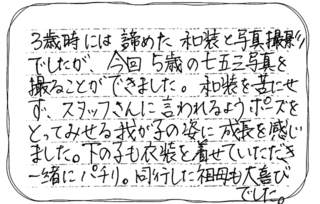 3歳時には 諦めた 和装と写真撮影
でしたが、今回 5歳の七五三写真を
撮ることができました。和装を苦にせ
ず、スタッフさんに言われるようポーズを
とってみせる我が子の姿に成長を感じ
ました。下の子も衣装を着せていただき
一緒にパチリ。同行した祖母も大喜び
でした。